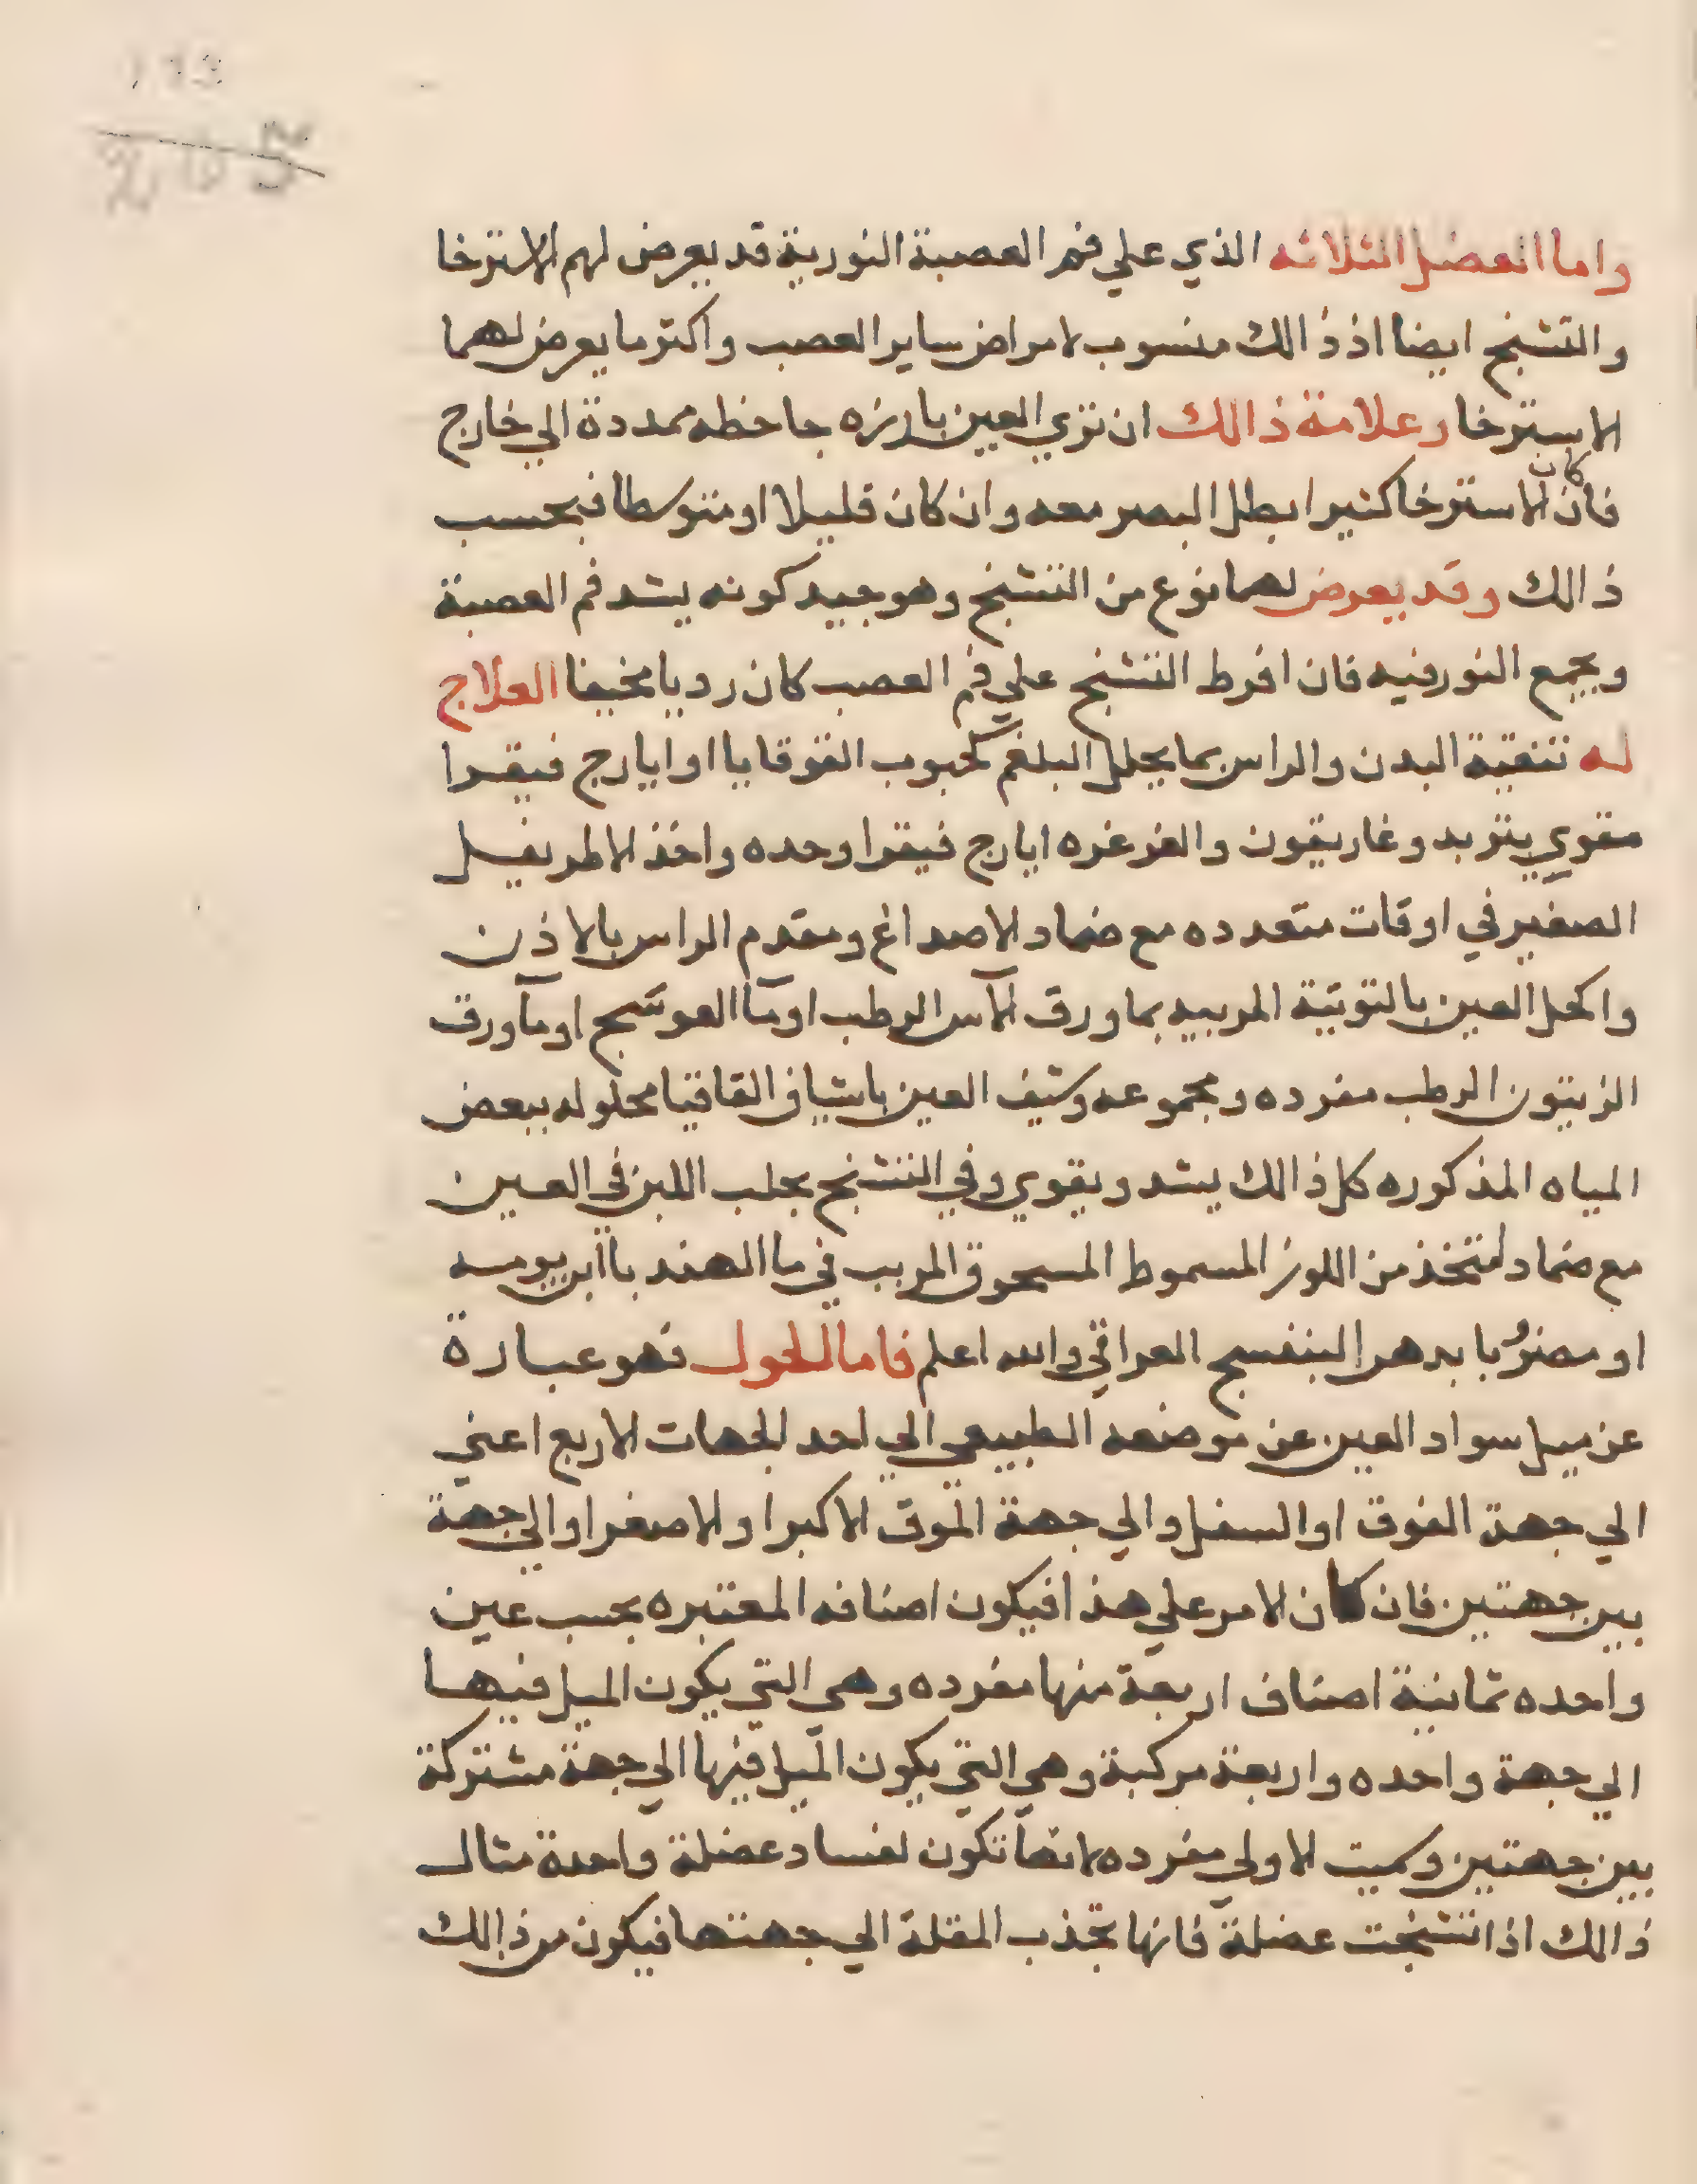 193
205
واما العضل الثلاثه الذي علي فم العصبة النورية قد يعرض لهم الاسترخا
والتشنج ايضا اذ ذالك منسوب لامراض ساير العصب واكتر ما يعرض لهما
الاسترخا وعلامة ذالك ان تري العين بارزه جاحظه ممددة الي خارج
فان كان الاسترخا كثيرا بطل البصر معه وان كان قليلا او متوسطا فبحسب
ذالك وقد يعرض لهما نوع من التشنج وهو جيد كونه يشد فم العصبة
ويجمع النور فيه فان افرط التشنج علي فم العصب كان رديا مخيفا العلاج
له تنقية البدن والراس بما يحلل البلغم كحبوب القوقايا او ايارج فيقرا
مقوي بتربد وغاريقون والغرغره ايارج فيقرا وحده واخذ الاطريفيل
الصغير في اوقات متعدده مع ضماد الاصداغ ومقدم الراس بالاذن
واكحل العين بالتوتية المربيه بما ورق الآس الرطب او مآ العوسج او مآ ورق
الزيتون الرطب مفرده ومجموعه وشيف العين باشياف القاقيا محلوله ببعض
المياه المذكوره كل ذالك يشد ويقوي وفي التشنج يحلب اللبن في العين
مع ضماد متخذ من اللوز المسموط المسحوق المربب في ما الهندبا
او بزهر البنفسج العراقي والله اعلم فاما الحول فهو عبارة
عن ميل سواد العين عن موضعه الطبيعي الي احد الجهات الاربع اعني
الي جهة الفوق او السفل والي جهة الموق الاكبر او الاصغر او الي جهة
بين جهتين فان كان الامر علي هذا فيكون اصنافه المعتبره بحسب عين
واحده ثمانية اصناف اربعة منها مفرده وهي التي يكون الميل فيها
الي جهة واحده واربعة مركبة وهي التي يكون الميل فيها الي جهة مشتركة
بين جهتين وسميت الاولي مفرده لانها تكون لفساد عضلة واحدة مثال
ذالك اذا تشنجت عضلة فانها تجذب المقلة الي جهتها فيكون من ذالك